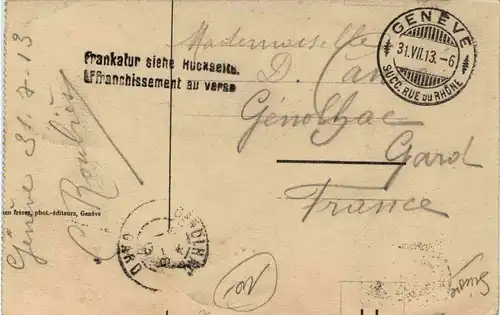 Frankatur siehe Rückseite.
Affranchissement au verso
GENÈVE
31.VII.13.-6
SUCC. RUE DU RHÔNE
Mademoiselle
D.
Génolhac
Gard
France
Genève 31-7-13
frères, phot.-éditeurs, Genève
GARD
Suisse